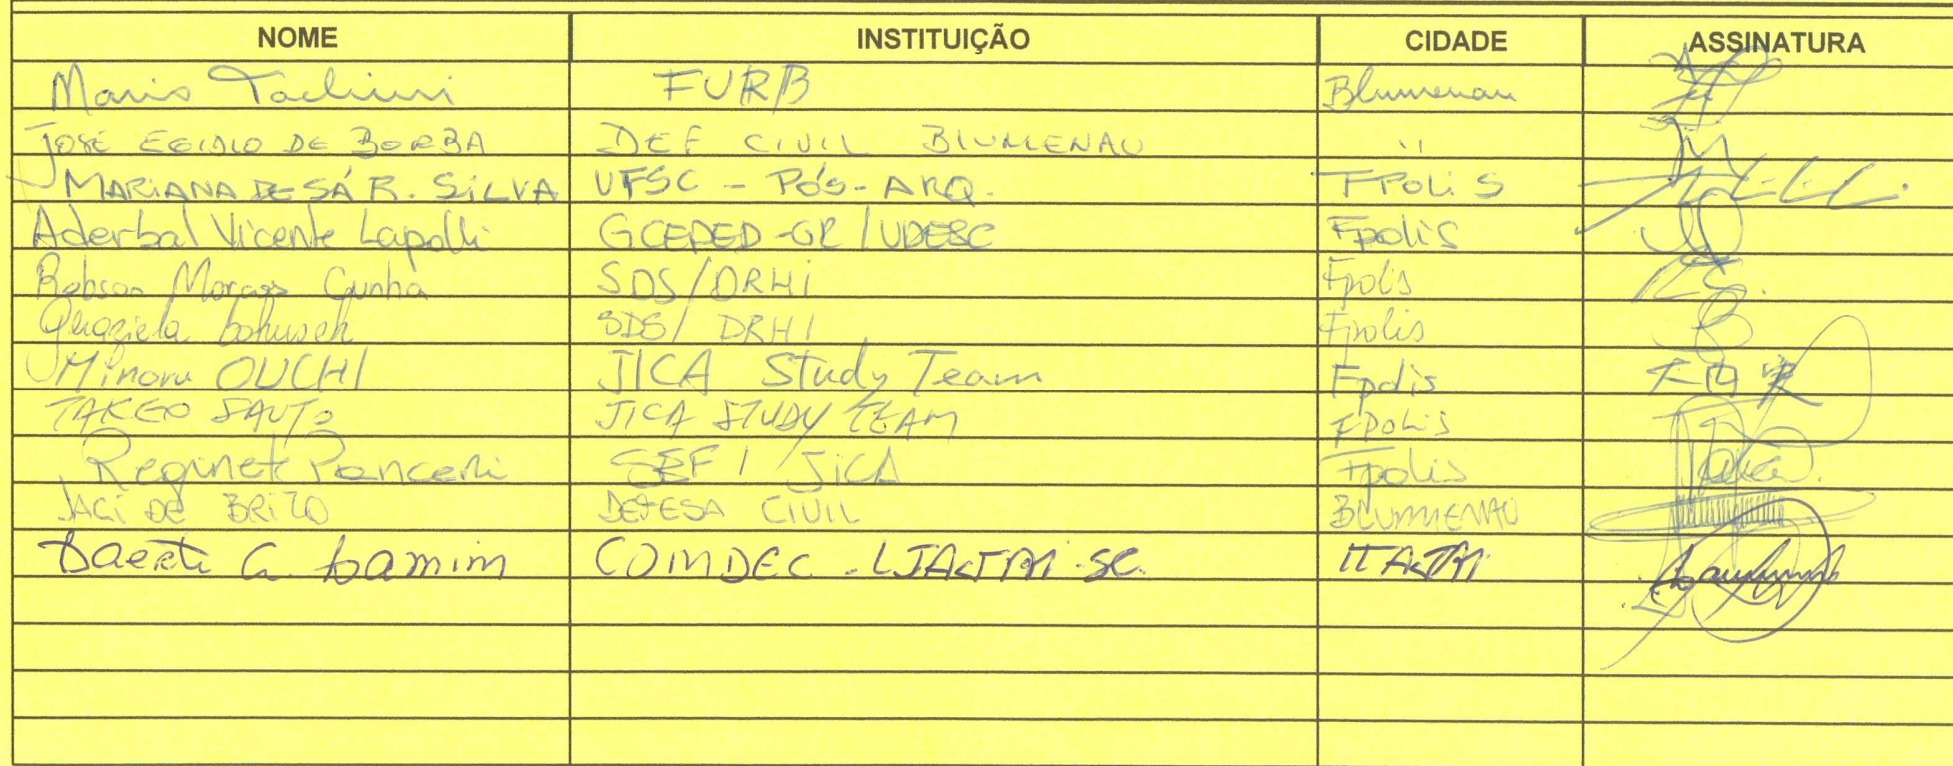 NOME INSTITUIÇÃO CIDADE ASSINATURA
Mario Tachini FURB Blumenau
JOSÉ EGIDIO DE BORBA DEF CIVIL BLUMENAU "
MARIANA DE SÁ R. SILVA UFSC - PÓS-ARQ. FPOLIS
Aderbal Vicente Lapolli GCEPED-GR/UDESC Fpolis
Robson Cunha SDS/DRHI Fpolis
SDS/DRHI Fpolis
Minoru OUCHI JICA Study Team Fpolis
TAKEO JICA STUDY TEAM FPOLIS
Panceri JICA Fpolis
JACI DE BRITO DEFESA CIVIL BLUMENAU
COMDEC - ITAJAI-SC. ITAJAI